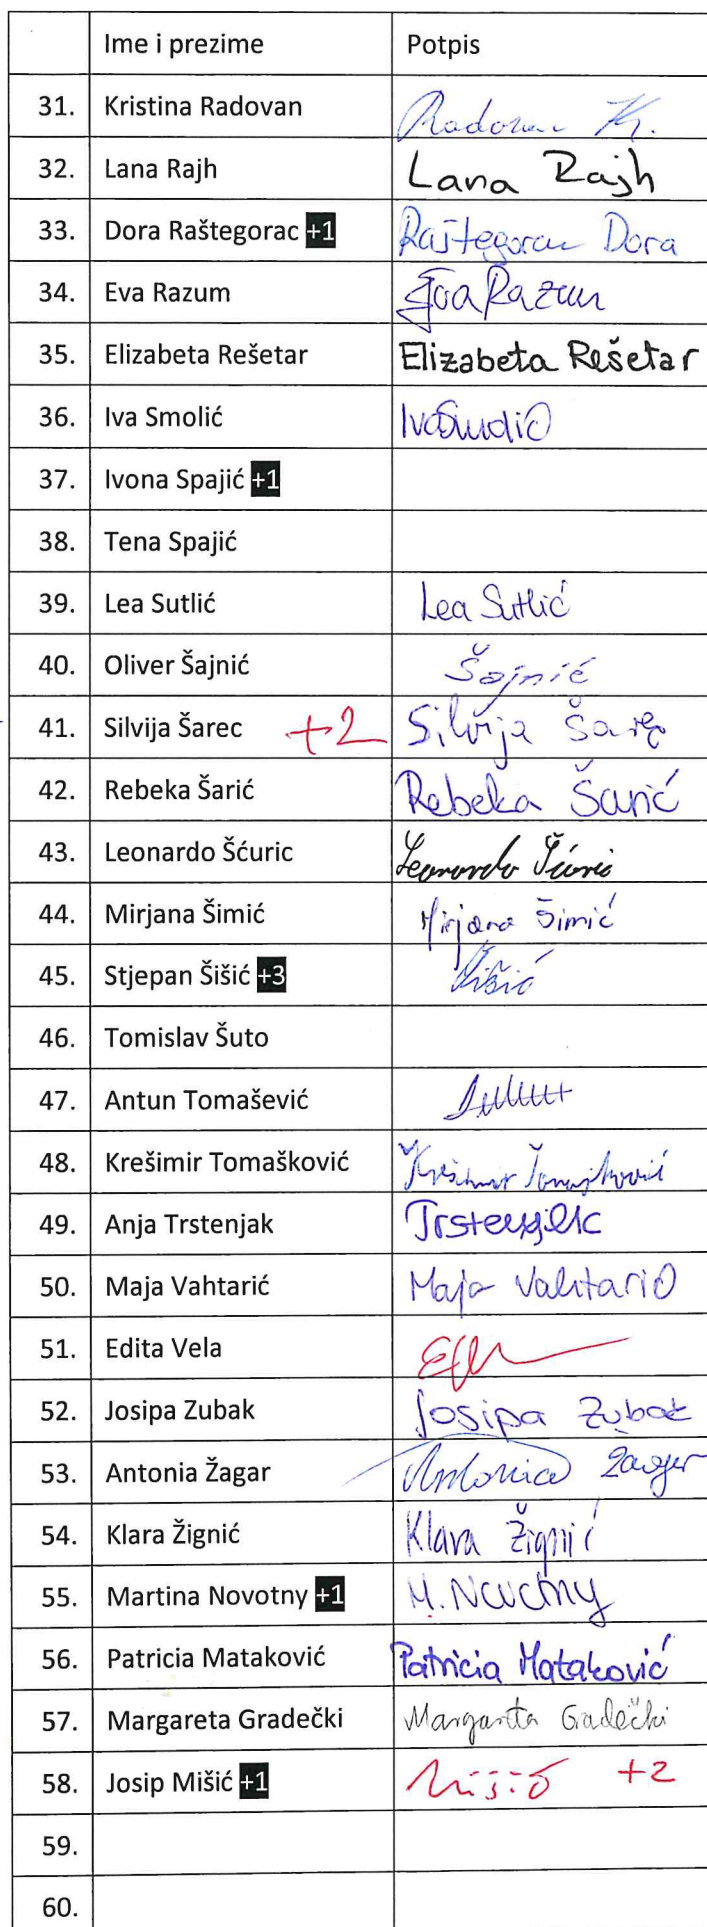 Ime i prezime Potpis
31. Kristina Radovan Radovan K.
32. Lana Rajh Lana Rajh
33. Dora Raštegorac +1 Raštegorac Dora
34. Eva Razum Eva Razum
35. Elizabeta Rešetar Elizabeta Rešetar
36. Iva Smolić Iva
37. Ivona Spajić +1
38. Tena Spajić
39. Lea Sutlić Lea Sutlić
40. Oliver Šajnić Šajnić
41. Silvija Šarec +2 Silvija Šarec
42. Rebeka Šarić Rebeka Šarić
43. Leonardo Šćuric Leonardo Šćuric
44. Mirjana Šimić Mirjana Šimić
45. Stjepan Šišić +3 Šišić
46. Tomislav Šuto
47. Antun Tomašević
48. Krešimir Tomašković Krešimir Tomašković
49. Anja Trstenjak Trstenjak
50. Maja Vahtarić Maja Vahtarić
51. Edita Vela
52. Josipa Zubak Josipa Zubak
53. Antonia Žagar Antonia Žagar
54. Klara Žignić Klara Žignić
55. Martina Novotny +1 M. Novotny
56. Patricia Mataković Patricia Mataković
57. Margareta Gradečki Margareta Gradečki
58. Josip Mišić +1 Mišić +2
59.
60.